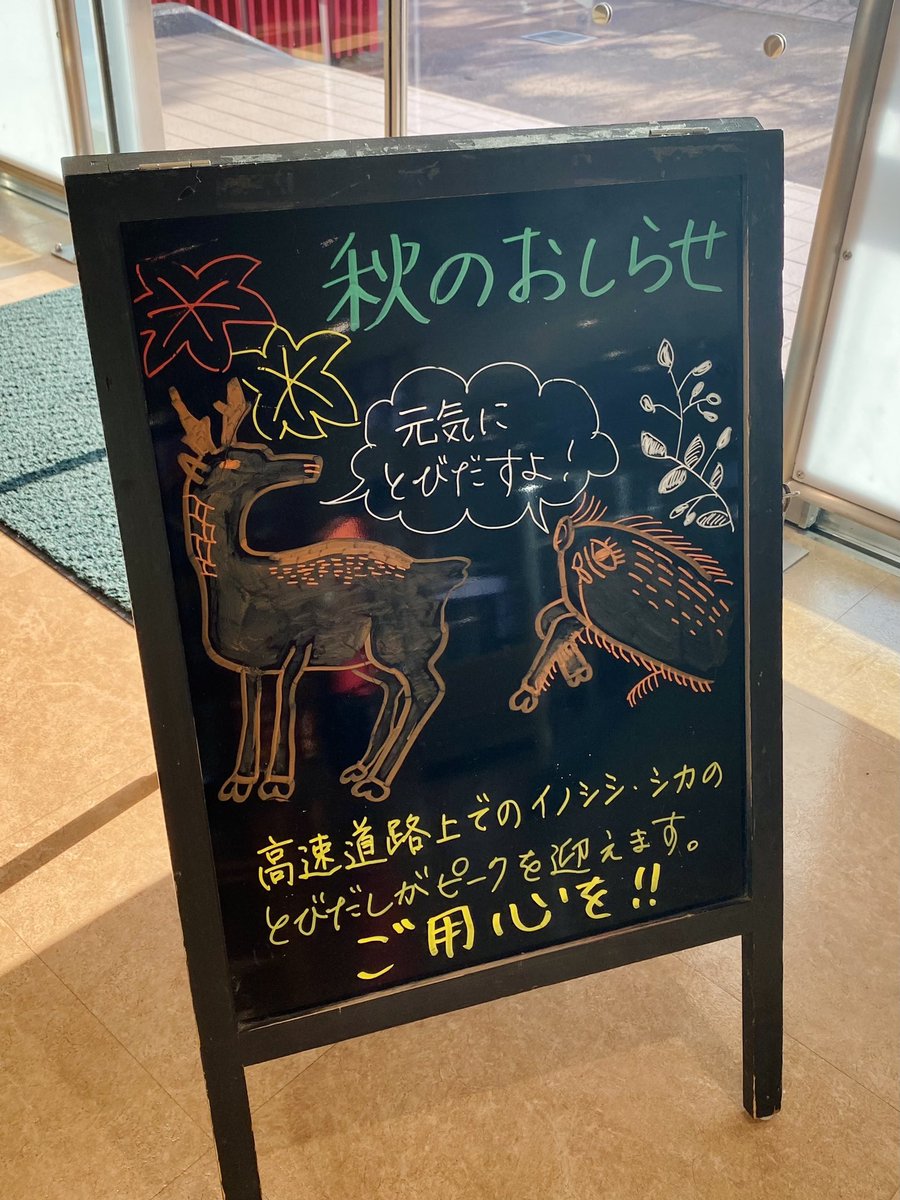 秋のおしらせ
元気に
とびだすよ！
高速道路上でのイノシシ・シカの
とびだしがピークを迎えます。
ご用心を！！